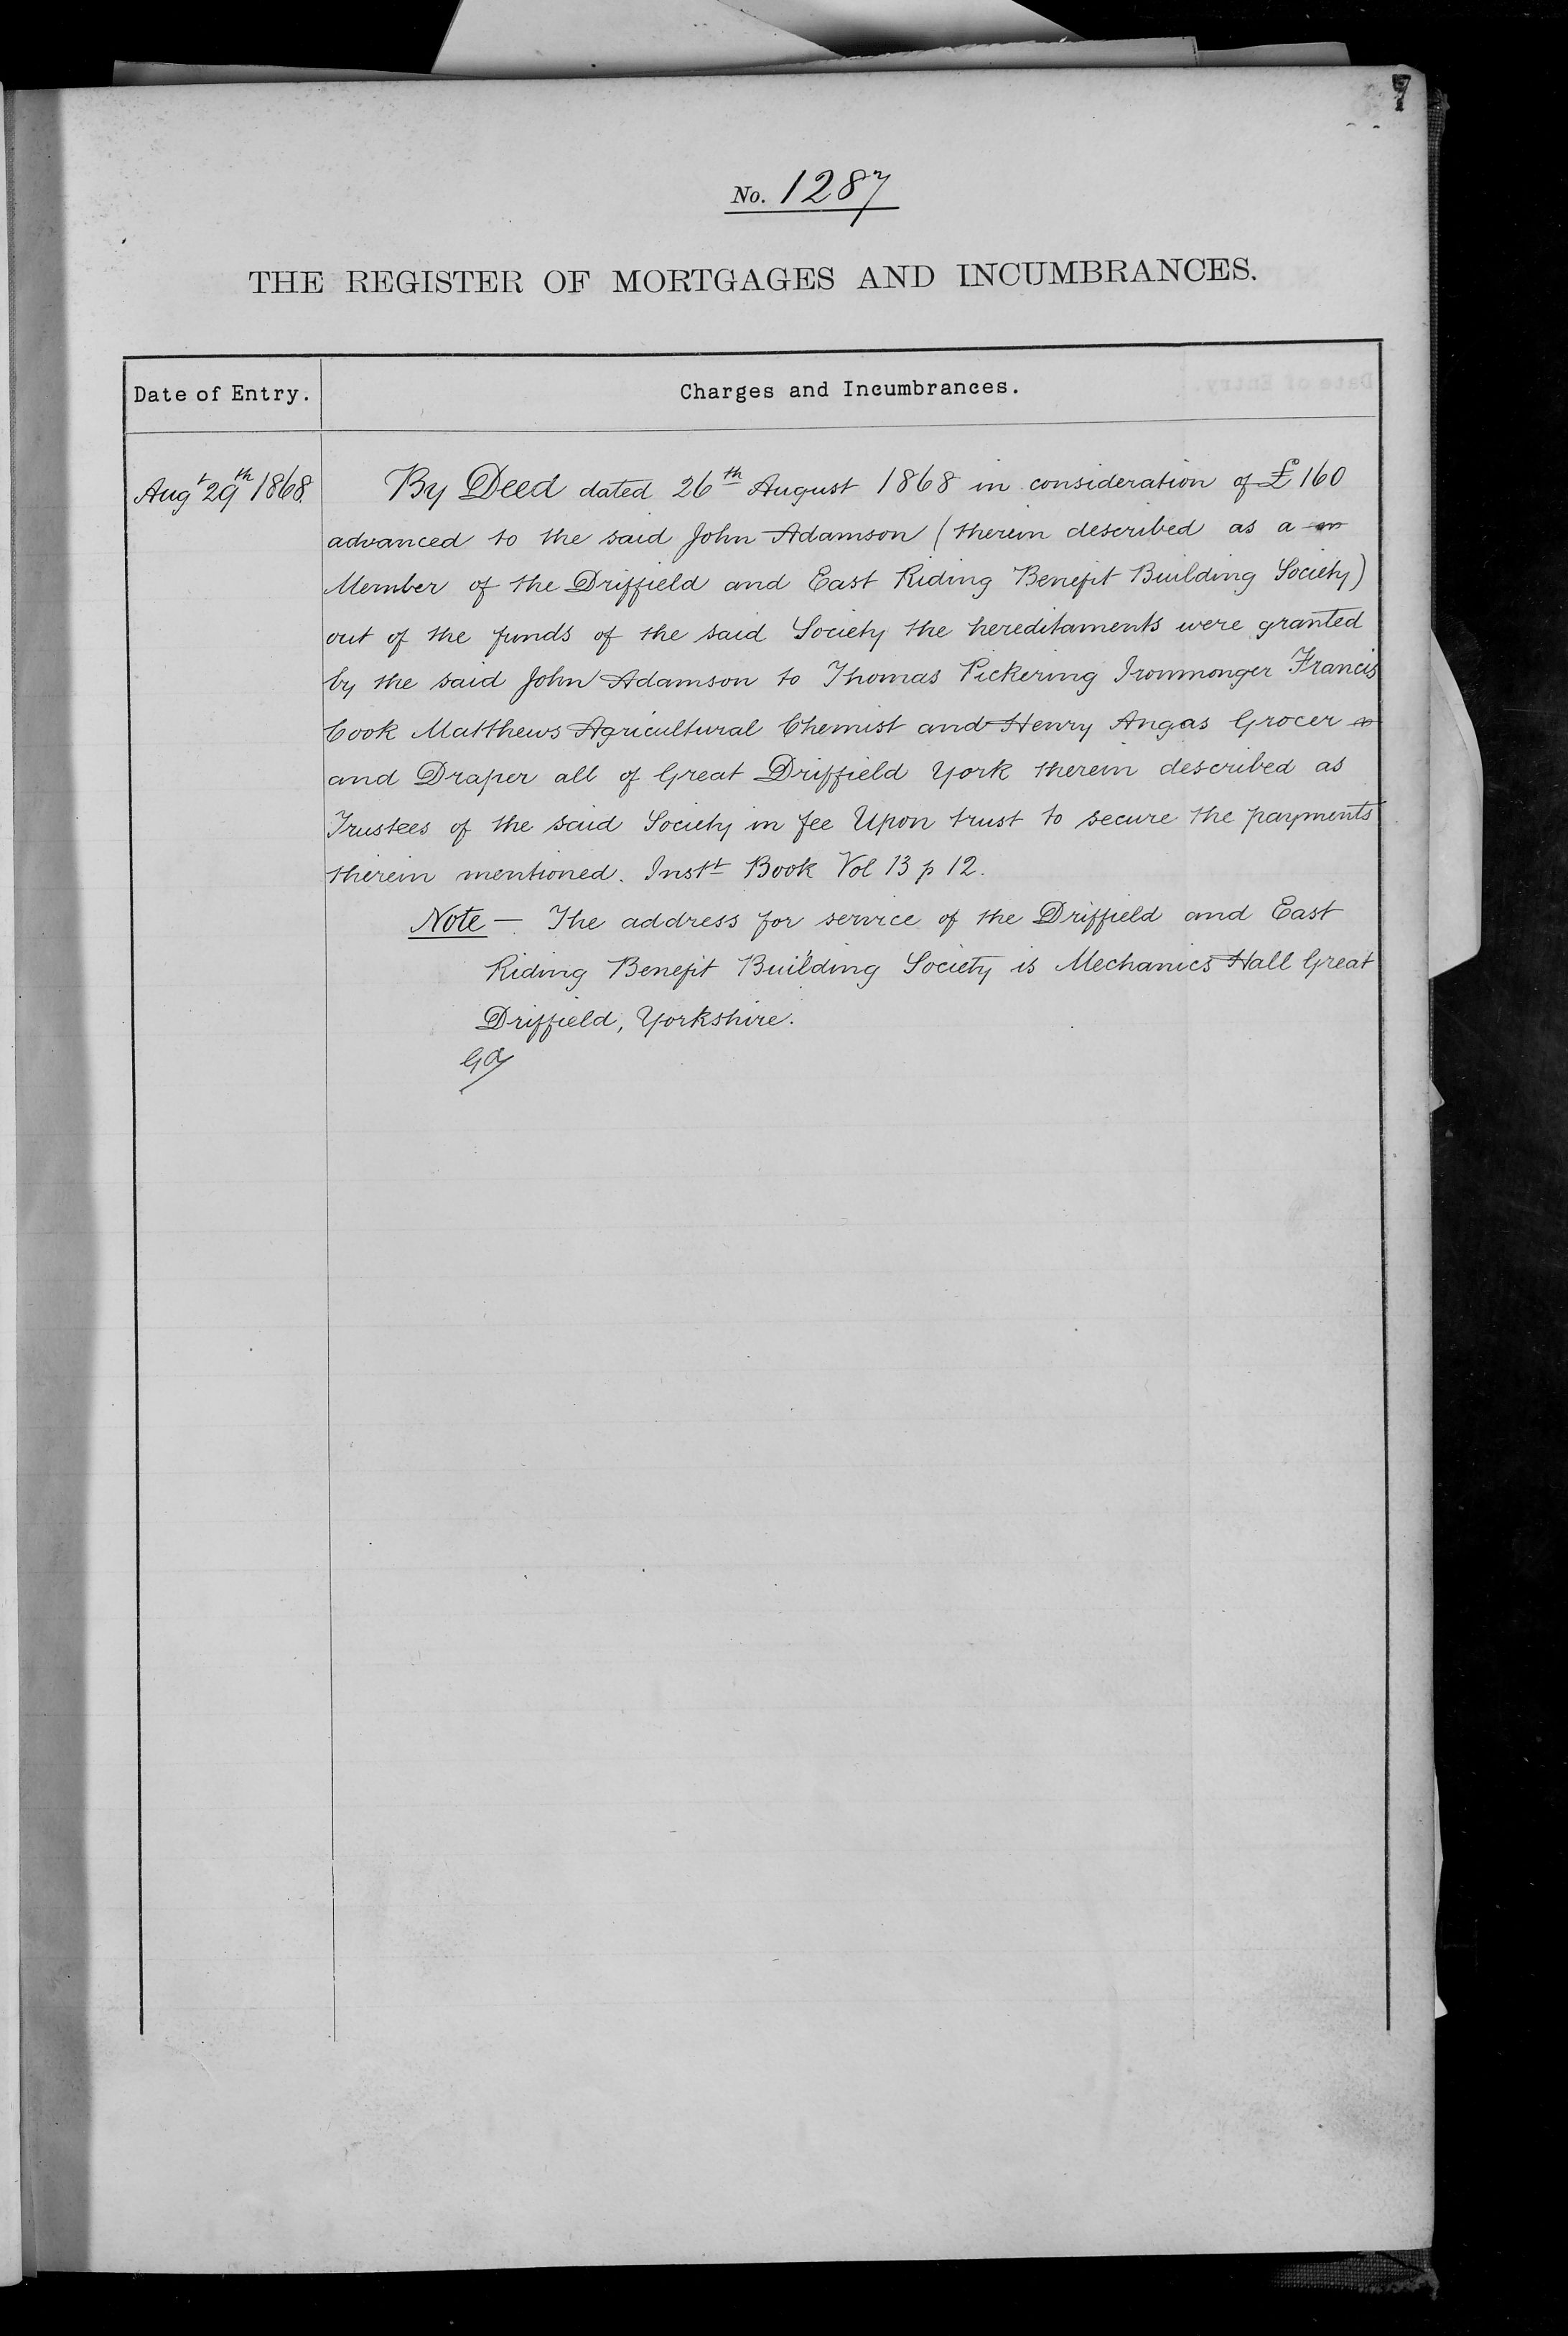 7
No. 1287
THE REGISTER OF MORTGAGES AND INCUMBRANCES.
Date of Entry.
Charges and Incumbrances.
Augt 29th 1868.
By Deed dated 26th August 1868 in consideration of £160
advanced to the said John Adamson (therein described as a
Member of the Driffield and East Riding Benefit Building Society)
out of the funds of the said Society the hereditaments were granted
by the said John Adamson to Thomas Pickering Ironmonger Francis
Cook Matthews Agricultural Chemist and Henry Angas Grocer
and Draper all of Great Driffield York therein described as
Trustees of the said Society in fee Upon trust to secure the payments
therein mentioned. Instt Book Vol 13 p 12.
Note — The address for service of the Driffield and East
Riding Benefit Building Society is Mechanics Hall Great
Driffield, Yorkshire.